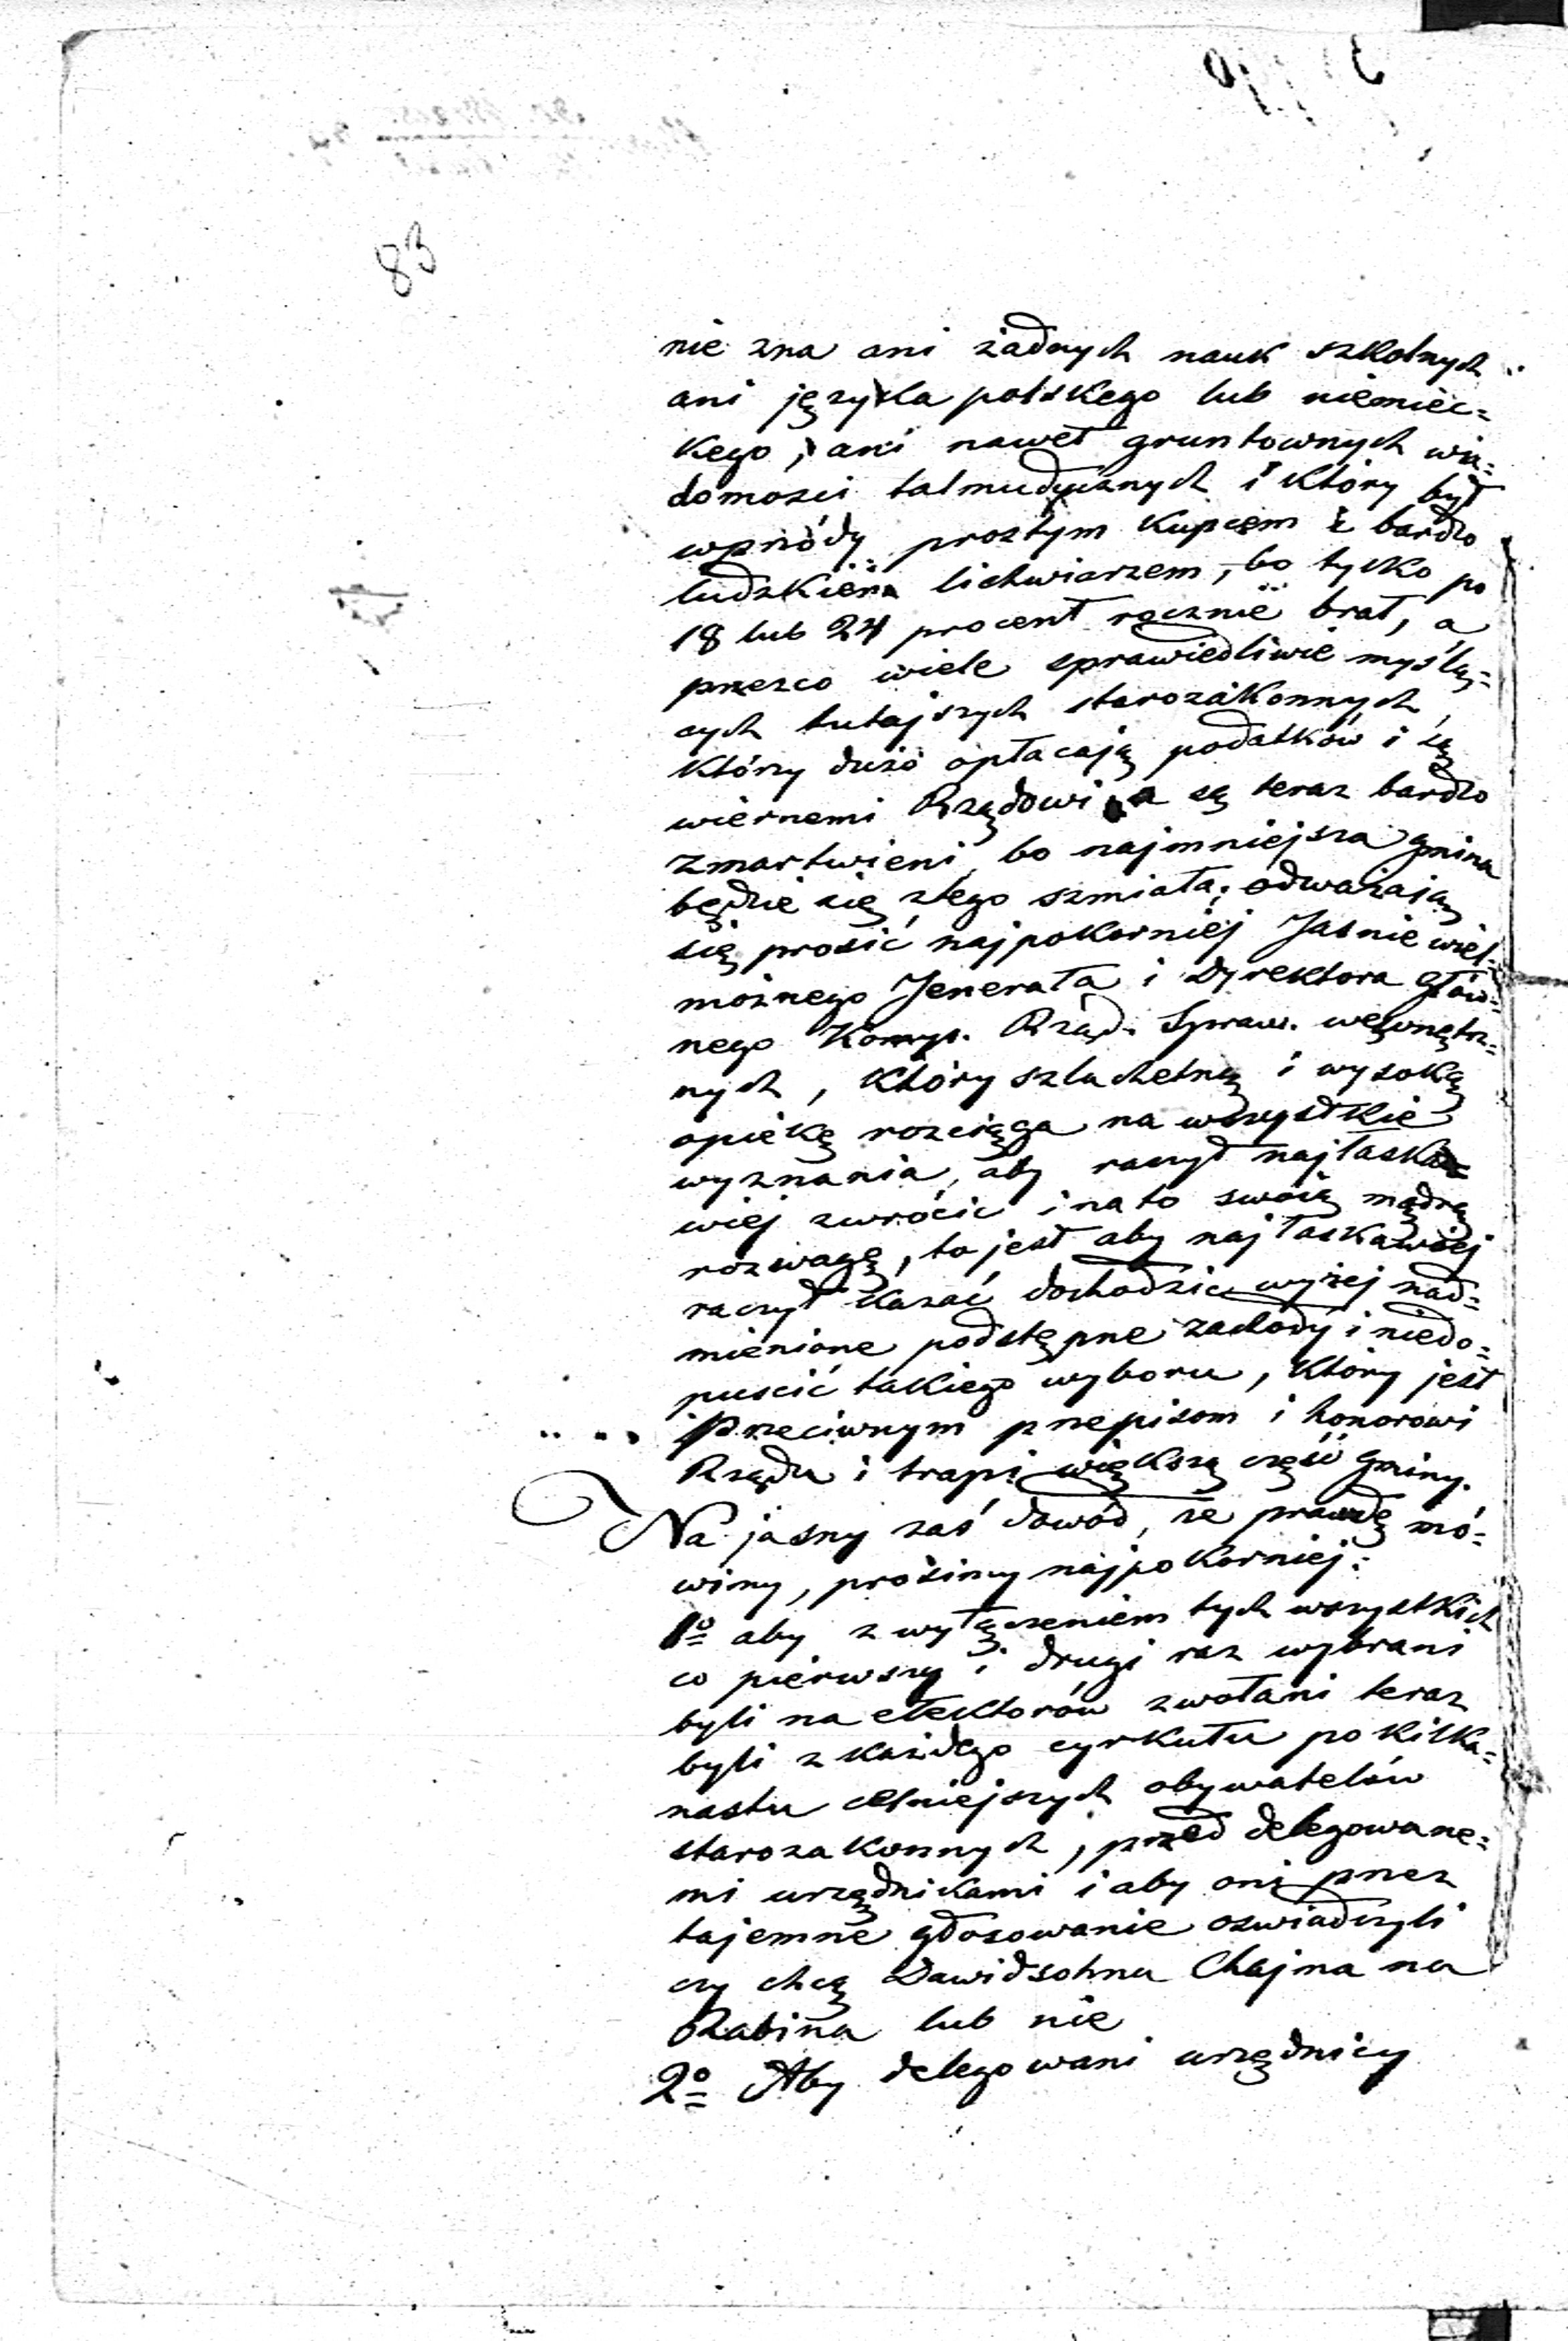 83
nie zna ani żadnych nauk szkolnych
ani języka polskego lub niemiec=
kego, ani nawet gruntownych wia=
domosci talmudycznych i który był
wprzódy prostym kupcem i bardzo
ludzkiem lichwiarzem, bo tylko po
18 lub 24 procent rocznie brał, a
przezco wiele sprawiedliwie myślą=
cych tutajszych starozakonnych,
który dużo opłacają podatków i są
wiernemi Rządowi a są teraz bardzo
zmartwieni, bo najmniejsza gmina
będzie się ztego szmiała; odważają
się prosić najpokorniéj Jasnie wiel=
możnego Jenerała i Dyrektora Głów=
nego Komys. Rząd. Spraw. wewnętrz=
nych, który szlachetną i wysoką
opiekę rozciąga na wszystkie
wyznania, aby raczył najłaska=
wiej zwrócic i na to swoią mądrą
rozwagę, to jest aby najłaskawiej
raczył kazać dochodzic wyżej nad=
mienione podstępne zachody i niedo=
puscić takiego wyboru, który jest
przeciwnym przepisom i honorowi
Rządu i trapi większą część gminy.
Na jasny zaś dowód, ze prawdę mó=
winy, prosimy najpokorniej:
1º aby z wyłączeniem tych wszystkich
co pierwszy i drugi raz wybrani
byli na elektorów zwołani teraz
byli z każdego cyrkułu po kilka=
nastu celniejszych obywatelów
starozakonnych, przed delegowane=
mi urzędnikami i aby oni przez
tajemne głosowanie oswiadczyli
czy chcą Dawidsohna Chajma na
Rabina lub nie
2º Aby delegowani urzędnicy